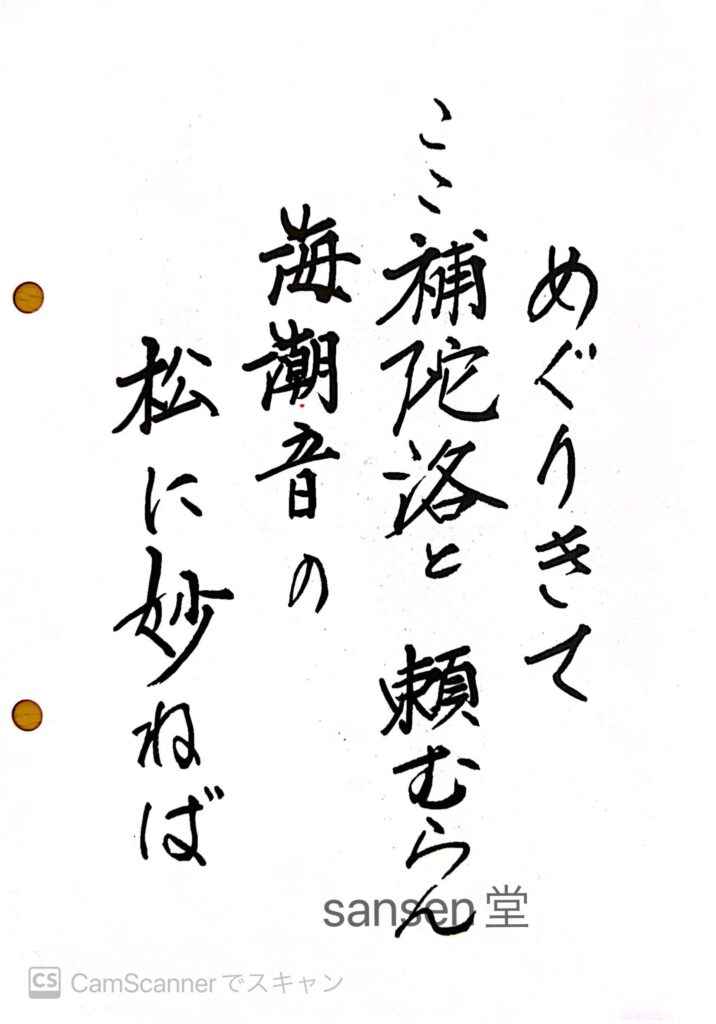 めぐりきて
ここ補陀洛と頼むらん
海潮音の
松に妙ねば
sansen堂
CS CamScannerでスキャン